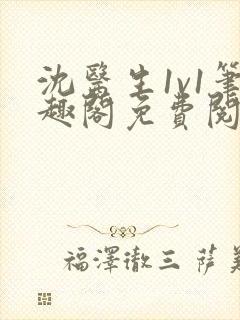 沈醫生1v1筆
趣閣免費閱
福澤徹三 薩